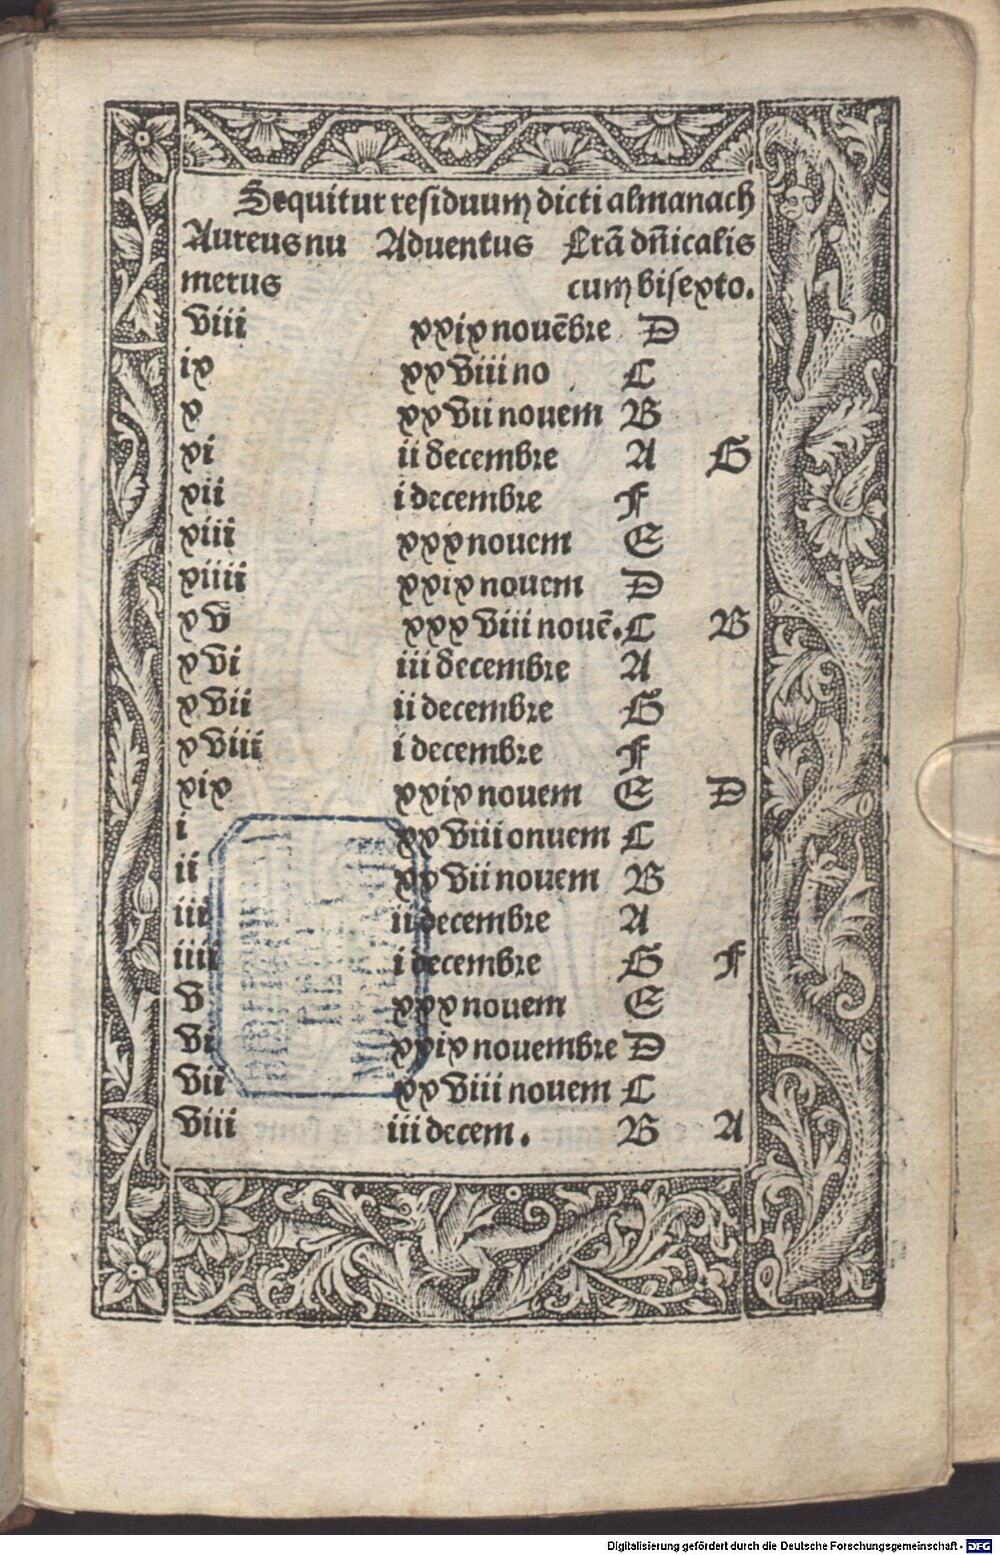 Sequitur residuum dicti almanach
Aureus nu Aduentus Lrã dñicalis
merus cum bisexto.
viii xxix nouẽbre D
ix xxviii no C
x xxvii nouem B
xi ii decembre A G
xii i decembre F
xiii xxx nouem E
xiiii xxix nouem D
xv xxxviii nouẽ. C B
xvi iii decembre A
xvii ii decembre G
xviii i decembre F
xix xxix nouem E D
i xxviii onuem C
ii xxvii nouem B
iii ii decembre A
iiii i decembre G F
v xxx nouem E
vi xxix nouembre D
vii xxviii nouem C
viii iii decem. B A
Digitalisierung gefördert durch die Deutsche Forschungsgemeinschaft - DFG